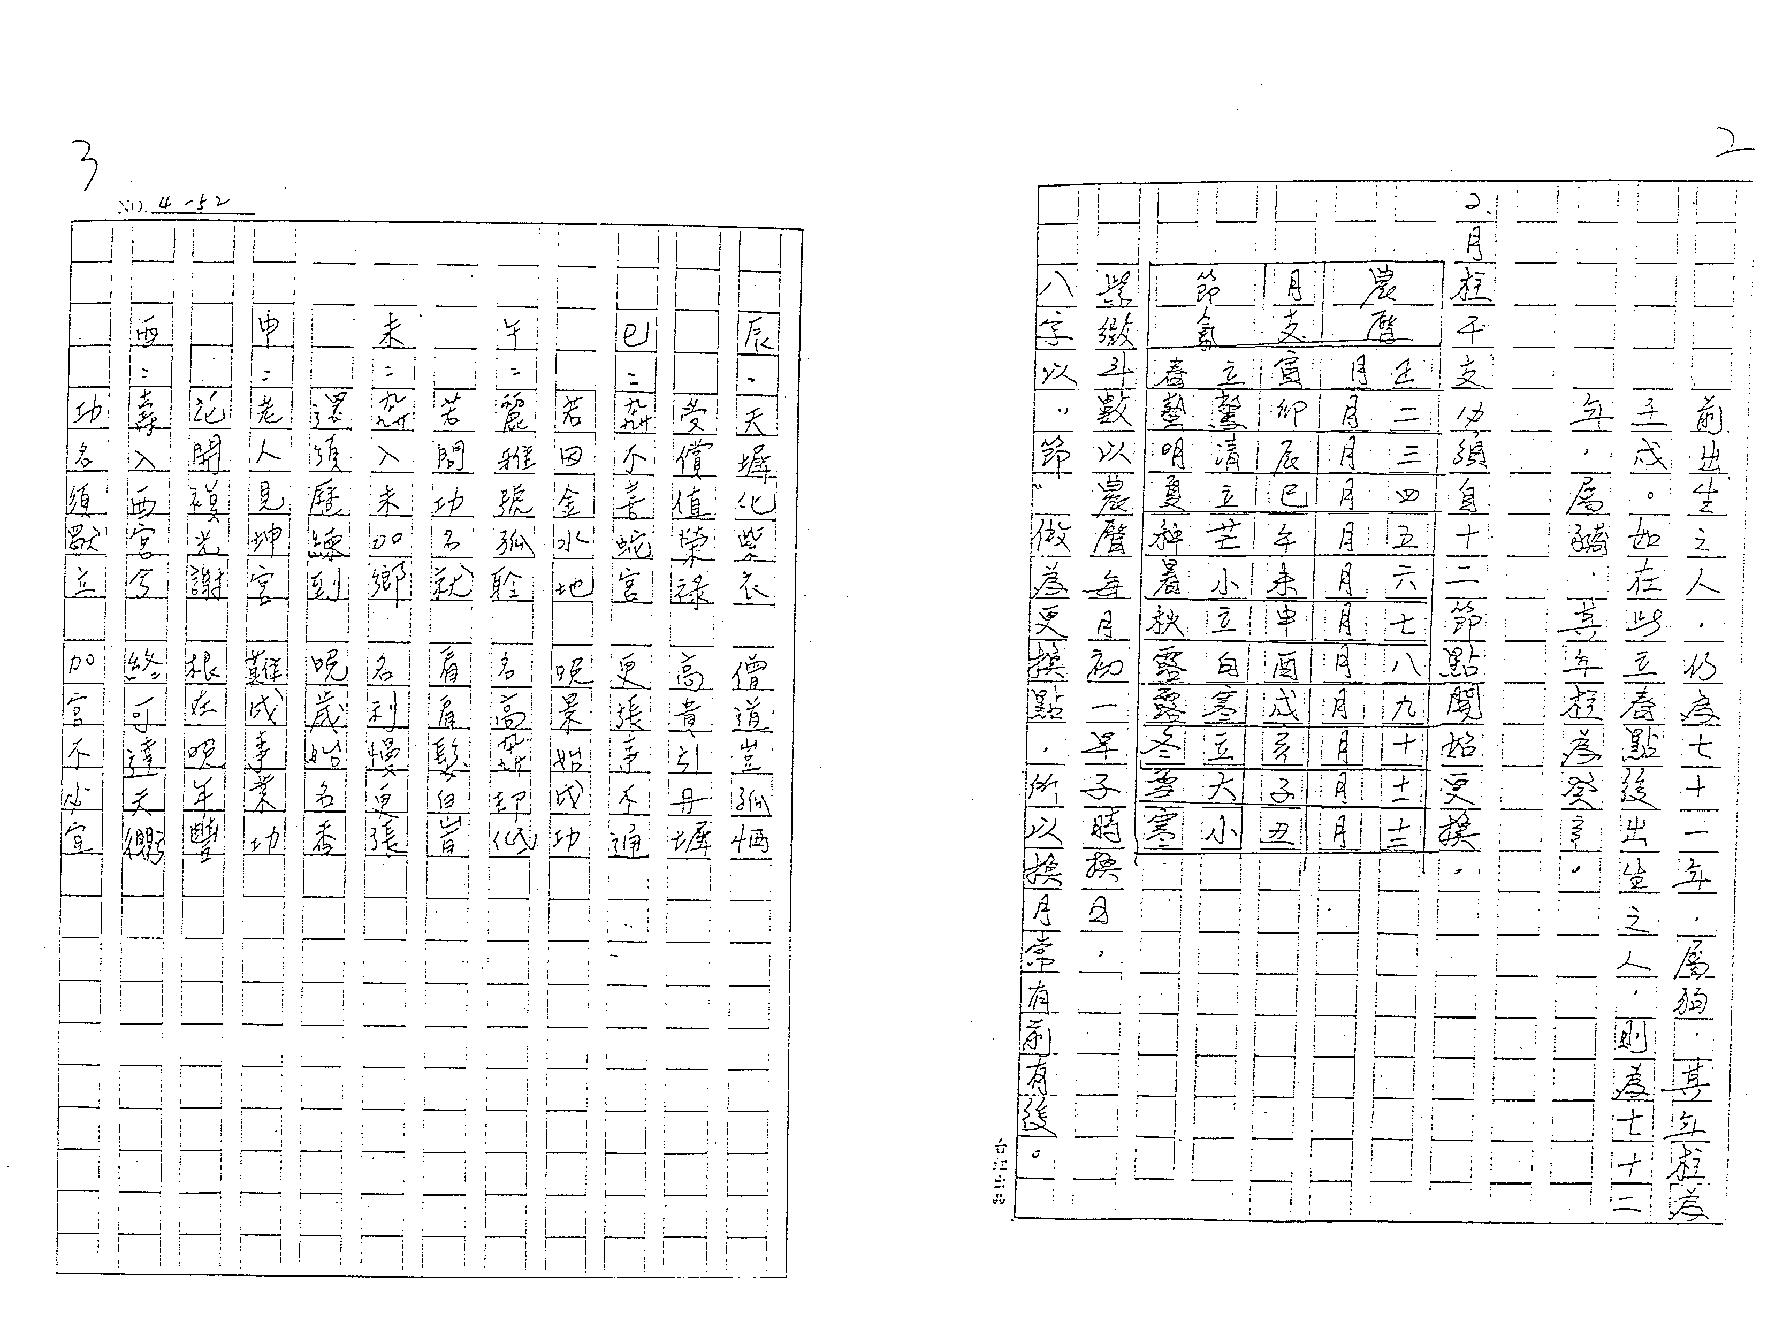 2
前出生之人，仍為七十一年，屬狗，其年柱為
壬戌。如在此立春點後出生之人，則為七十二
年，屬豬，其年柱為癸亥。
2.月柱干支必須自十二節點開始更換。
農曆 月支 節氣
正月 寅 立春
二月 卯 驚蟄
三月 辰 清明
四月 巳 立夏
五月 午 芒种
六月 未 小暑
七月 申 立秋
八月 酉 白露
九月 戌 寒露
十月 亥 立冬
十一月 子 大雪
十二月 丑 小寒
紫微斗數以農曆每月初一早子時換月，
八字以〝節〞做為更換點，所以換月常有前有後。
3
NO. 4-52
辰：天墀化紫衣 僧道豈孤恓
受償值榮祿 高貴引丹墀
巳：喜蛇宮 更張事不通
若因金水地 晚景始成功
午：麗雅號孤 名高却低
若問功名就 眉眉髮白皆
未：入未加鄉 名利慢更張
還須歷練到 晚歲始名香
申：老人見坤宮 難成事業功
記開模光謝 根在晚年豐
酉：壽入酉宮兮 終可達天
功名須獻立 加官不必宜